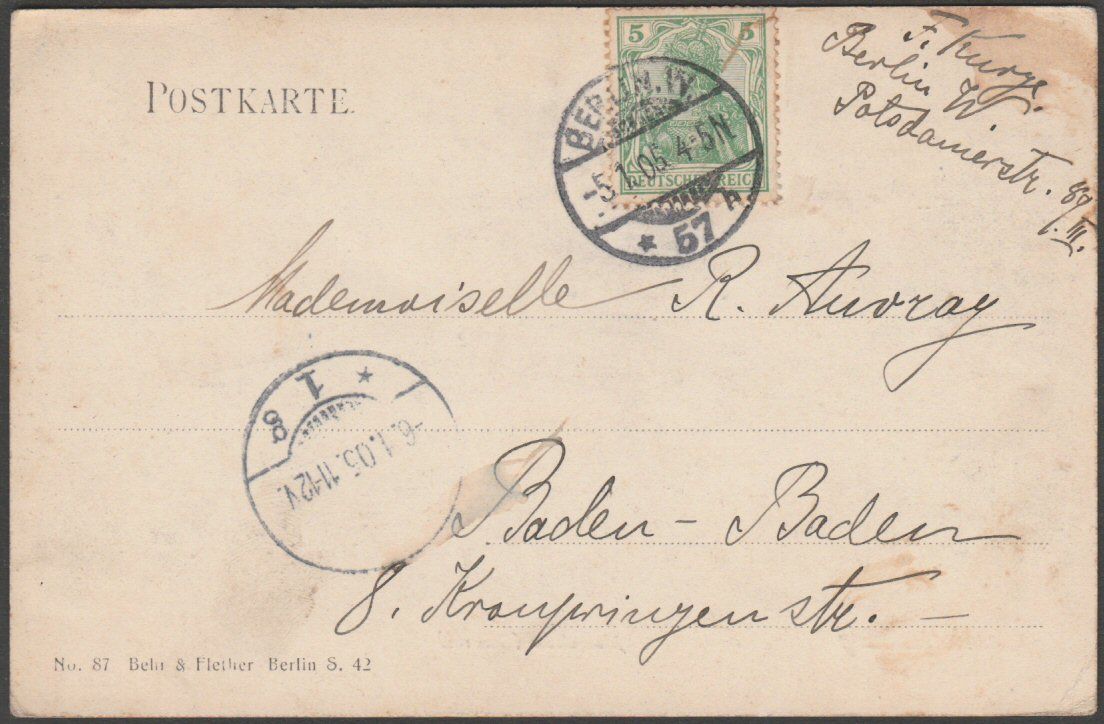 POSTKARTE.
5 5
DEUTSCHES REICH
BERLIN.W.
-5.1.05.4-5N
* 57 h.
F. Kurze.
Berlin W.
Potsdamerstr. 
III.
Mademoiselle R. Auvray
* 1
8
-6.1.05.11-12V.
Baden-Baden
8. Kronprinzenstr. –
No. 87 Behr & Flether Berlin S. 42